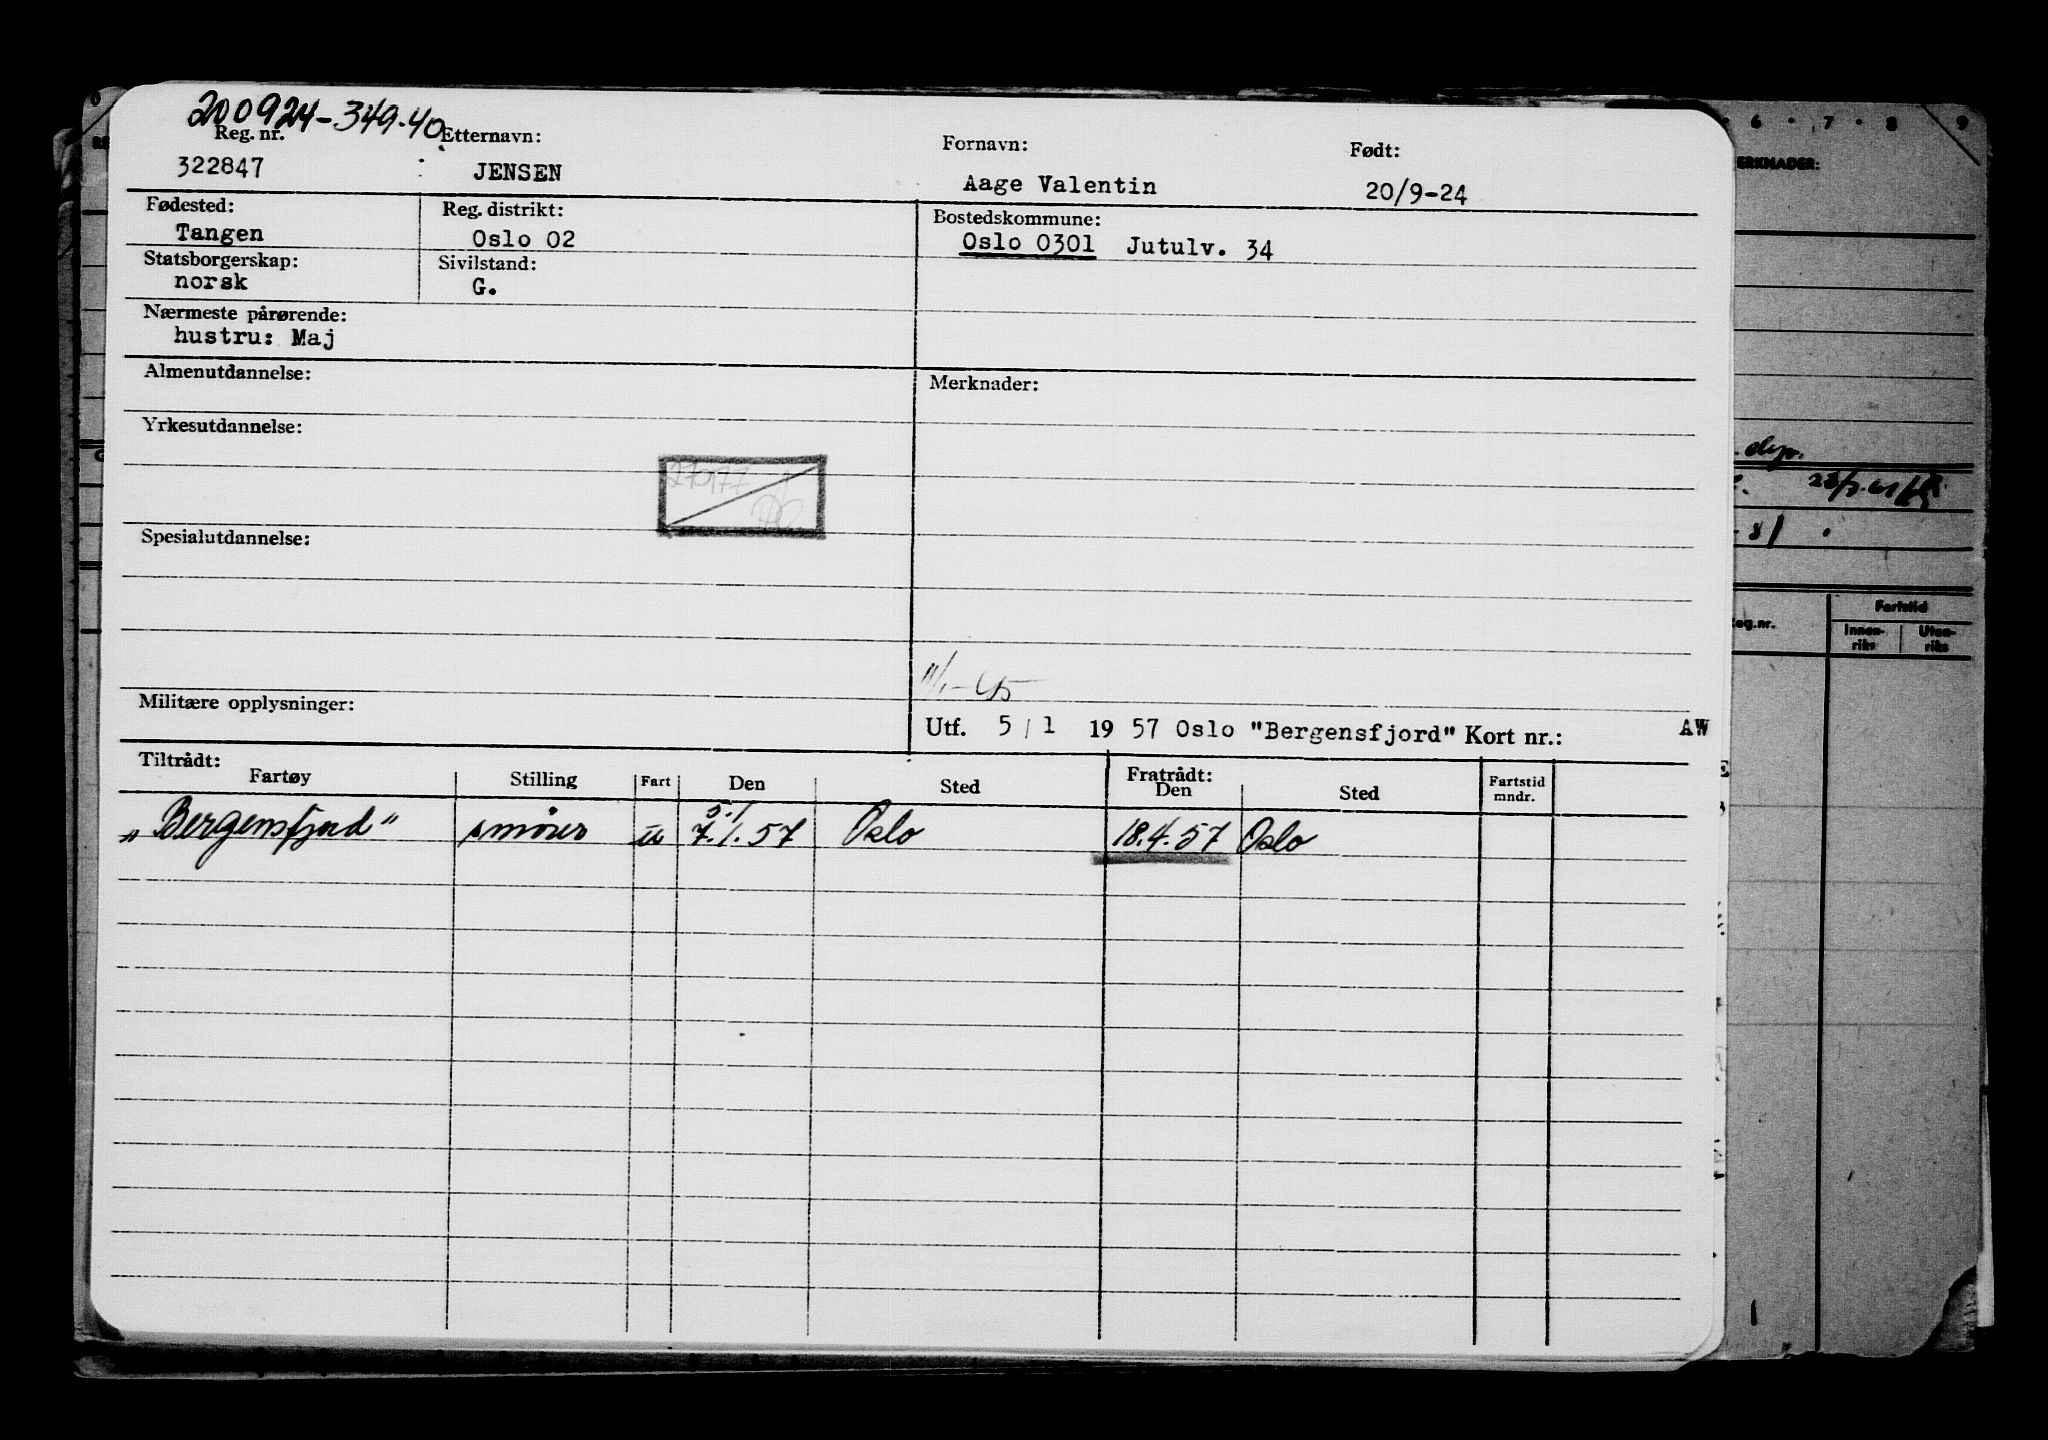 200924-349.40
Reg. nr. Etternavn: Fornavn: Født:
322847 JENSEN Aage Valentin 20/9-24
Fødested: Reg. distrikt: Bostedskommune:
Tangen Oslo 02 Oslo 0301 Jutulv. 34
Statsborgerskap: Sivilstand:
norsk G.
Nærmeste pårørende:
hustru: Maj
Almenutdannelse: Merknader:
Yrkesutdannelse:
270177
Spesialutdannelse:
11/1-45
Militære opplysninger:
Utf. 5/1 1957 Oslo "Bergensfjord" Kort nr.: AW
Tiltrådt: Fratrådt:
Fartøy Stilling Fart Den Sted Den Sted Fartstid mndr.
5.1
"Bergensfjord" smører u 7.1.57 Oslo 18.4.57 Oslo
6 · 7 · 8 9
ERKNADER:
dep.
81
eg.nr. Fartstid
Innen-riks Uten-riks